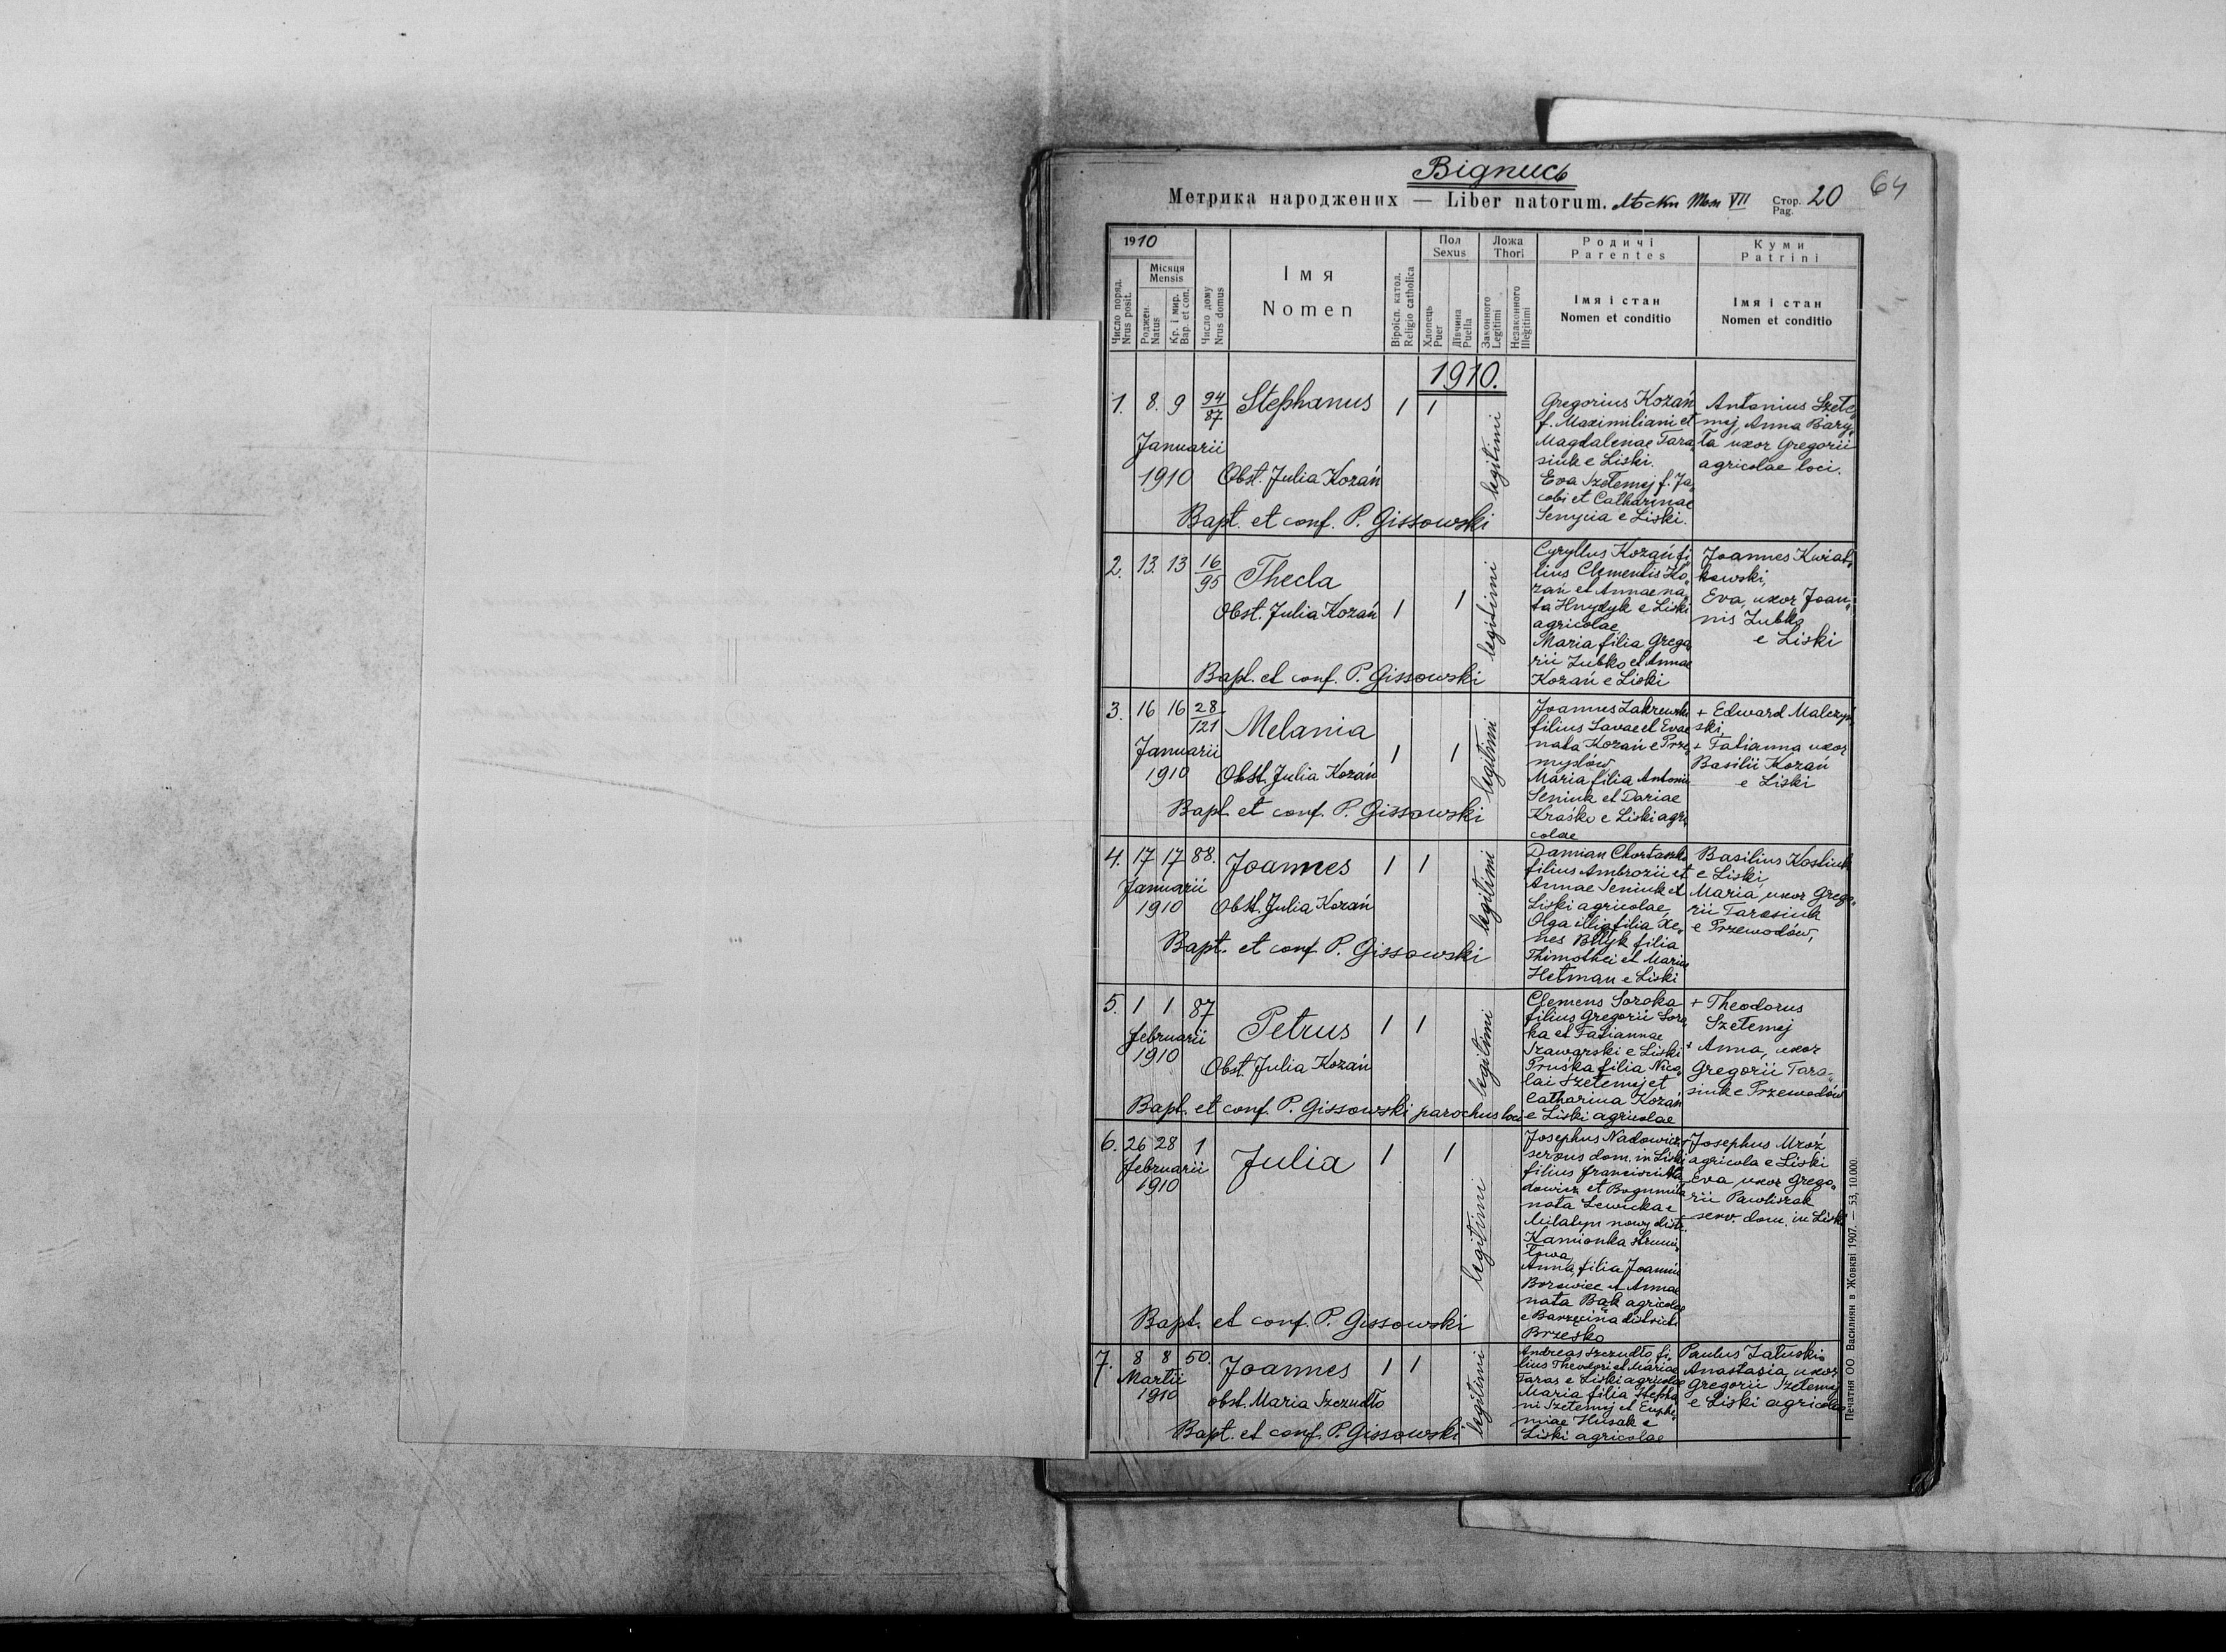 Відпись
64
Метрика народжених — Liber natorum. Лѣски Том VII Стор. Pag. 20
1910
Місяця
Mensis
Число поряд.
Nrus posit.
Роджен.
Natus
Кр. і мир.
Bap. et con.
Число дому
Nrus domus
Імя
Nomen
Віроісп. катол.
Religio catholica
Пол
Sexus
Хлопець
Puer
Дівчина
Puella
Ложа
Thori
Законного
Legitimi
Незаконного
Illegitimi
Родичі
Parentes
Імя і стан
Nomen et conditio
Куми
Patrini
Імя і стан
Nomen et conditio
1910.
1. 8. 9 94/87 Stephanus 1 1
Januarii
1910 Obst. Julia Kozań
legitimi
Bapt. et conf. P. Gissowski
Gregorius Kozań
f. Maximiliani et
Magdalenae Tara„
siuk e Liski.
Eva Szełemej f. Ja„
cobi et Catharinae
Senycia e Liski.
Antonius Szełe„
mej, Anna Bary„
ła uxor Gregorii
agricolae loci.
2. 13. 13 16/95 Thecla
Obst. Julia Kozań 1 1
legitimi
Bapt. et conf. P. Gissowski
Cyryllus Kozań fi„
lius Clementis Ko„
zań et Annae na„
ta Hnydyk e Liski
agricolae
Maria filia Grego„
rii Zubko et Annae
Kozań e Liski
Joannes Kwiat„
kowski,
Eva, uxor Joan„
nis Zubko
e Liski
3. 16 16 28/121 Melania
Januarii 1 1
1910 Obst. Julia Kozań
legitimi
Bapt. et conf. P. Gissowski
Joannes Zakrewski
filius Savae et Evae
nata Kozań e Prze„
mysłów
Maria filia Antonii
Seniuk et Dariae
Kraśko e Liski agri„
colae
+ Edward Malczyń„
ski,
+ Tatianna uxor
Basilii Kozań
e Liski
4. 17 17 88. Joannes 1 1
Januarii
1910 Obst. Julia Kozań
legitimi
Bapt. et conf. P. Gissowski
Damian Chortaszko
filius Ambrozii et
Annae Seniuk et
Liski agricolae,
Olga filia Xe„
nes Bilyk filia
Thimothei et Mariae
Hetman e Liski
Basilius Kostiuk
e Liski,
Maria, uxor Grego„
rii Tarasiuk
e Przewodów,
5. 1 1 87 Petrus 1 1
Februarii
1910
Obst. Julia Kozań
legitimi
Bapt. et conf. P. Gissowski parochus loci
Clemens Soroka
filius Gregorii Soro„
ka et Tatiannae
Szawarski e Liski
Pruśka filia Nico„
lai Szełemej et
Catharina Kozań
e Liski agricolae
+ Theodorus
Szełemej
+ Anna, uxor
Gregorii Tara„
siuk e Przewodów
6. 26 28 1 Julia 1 1
Februarii
1910
legitimi
Bapt. et conf. P. Gissowski
Josephus Nadowicz
servus dom. in Liski
filius Francisci Na„
dowicz et Bogumila
nata Lewicka e
Milatyn nowy distr.
Kamionka Strumi„
łowa,
Anna, filia Joannis
Borowiec et Annae
nata Bąk agricolae
e Barzęcina districti
Brzesko
+ Josephus Mroź
agricola e Liski
Eva uxor Grego„
rii Pawliszak
serv. dom. in Liski
7. 8 8 50. Joannes 1 1
Martii
1910 obst. Maria Szczudło
legitimi
Bapt. et conf. P. Gissowski
Andreas Szczudło fi„
lius Theodori et Mariae
Taras e Liski agricolae
Maria filia Stepha„
ni Szełemej et Euphe„
miae Husak e
Liski agricolae
Paulus Załuski
Anastasia, uxor
Gregorii Szełemej
e Liski agricolae
Печатня ОО. Василиян в Жовкві 1907. — 53, 10.000.